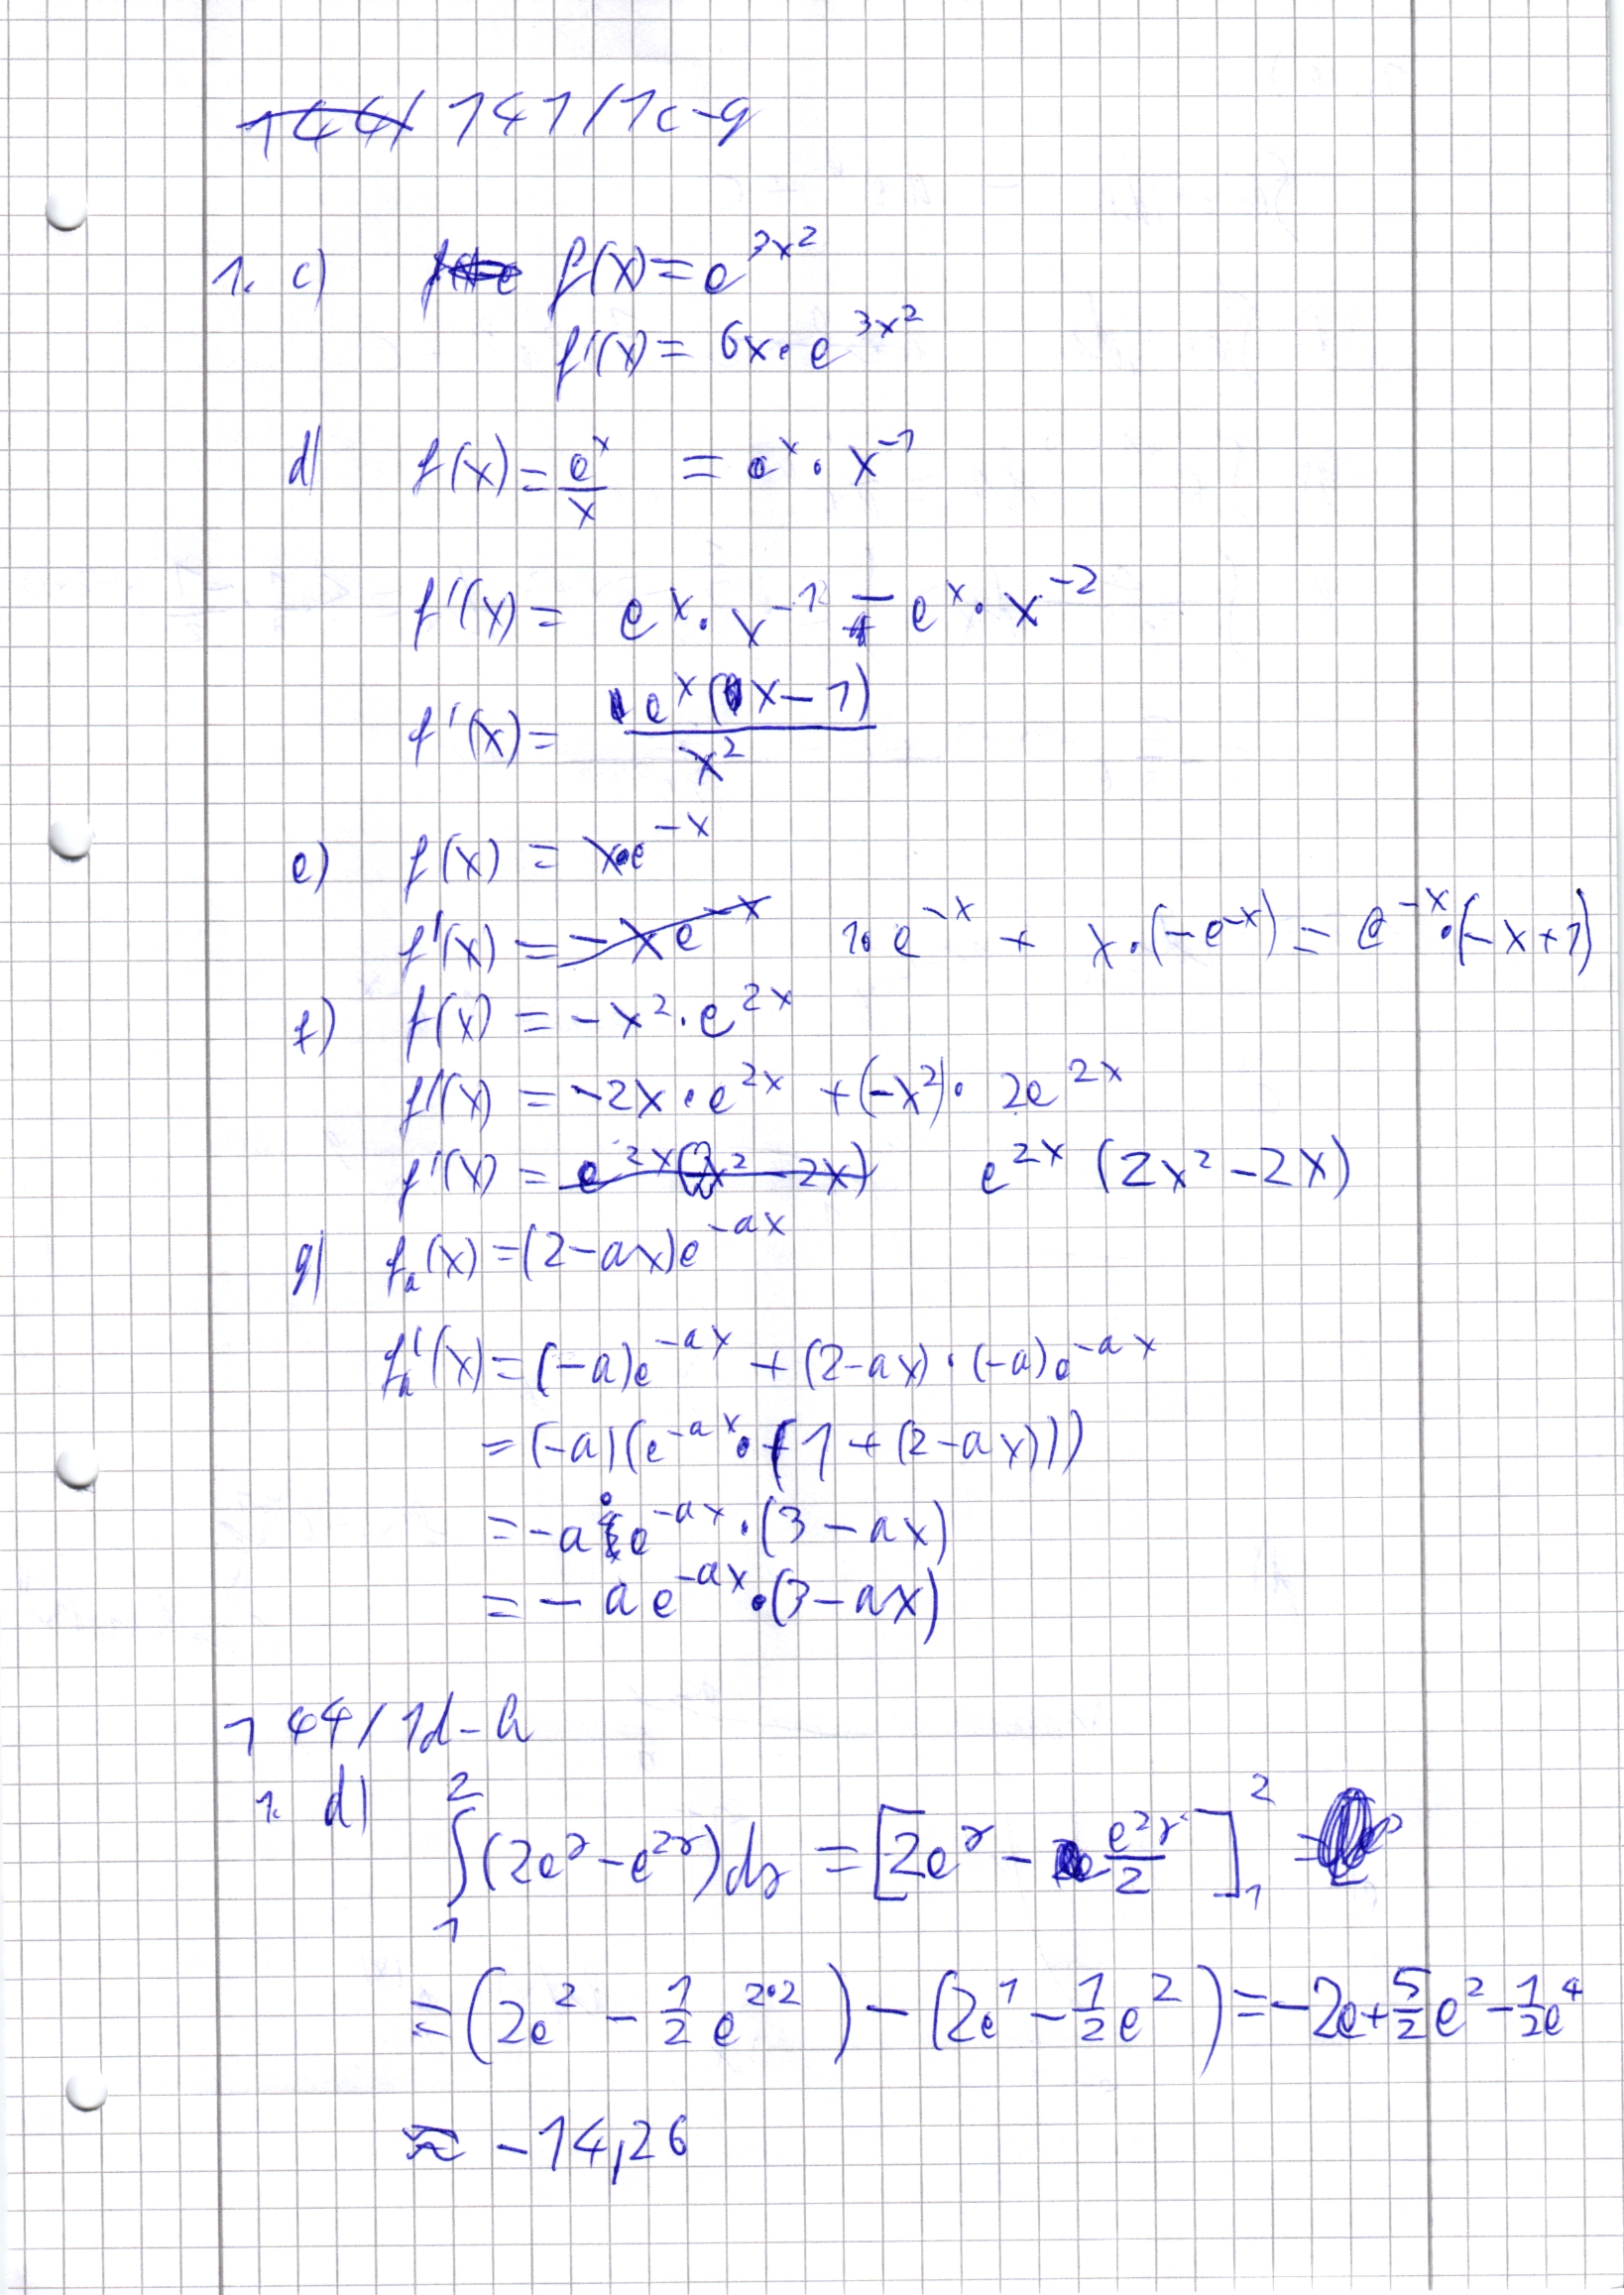 144/ 141/1c-g
1. c) f(x)=e^{3x^2}
f'(x)= 6x·e^{3x^2}
d) f(x)=\frac{e^x}{x} = e^x·x^{-1}
f'(x)= e^x·x^{-1} - e^x·x^{-2}
f'(x)= \frac{e^x(x-1)}{x^2}
e) f(x) = x·e^{-x}
f'(x) = -xe^{-x} 1·e^{-x} + x·(-e^{-x}) = e^{-x}·(-x+1)
f) f(x) = -x^2·e^{2x}
f'(x) = -2x·e^{2x} +(-x^2)· 2e^{2x}
f'(x) = e^{2x}(x^2-2x) e^{2x} (2x^2-2x)
g) f_a(x) =(2-ax)e^{-ax}
f_a'(x)=(-a)e^{-ax} +(2-ax)·(-a)e^{-ax}
=(-a)(e^{-ax}·(1+(2-ax)))
=-a·e^{-ax}·(3-ax)
=-ae^{-ax}·(3-ax)
144/1d-h
1. d) \int_1^2(2e^r-e^{2r})dr =[2e^r-\frac{e^{2r}}{2}]_1^2 =
=(2e^2-\frac{1}{2}e^{2·2})-(2e^1-\frac{1}{2}e^2)=-2e+\frac{5}{2}e^2-\frac{1}{2}e^4
≈ -14,26